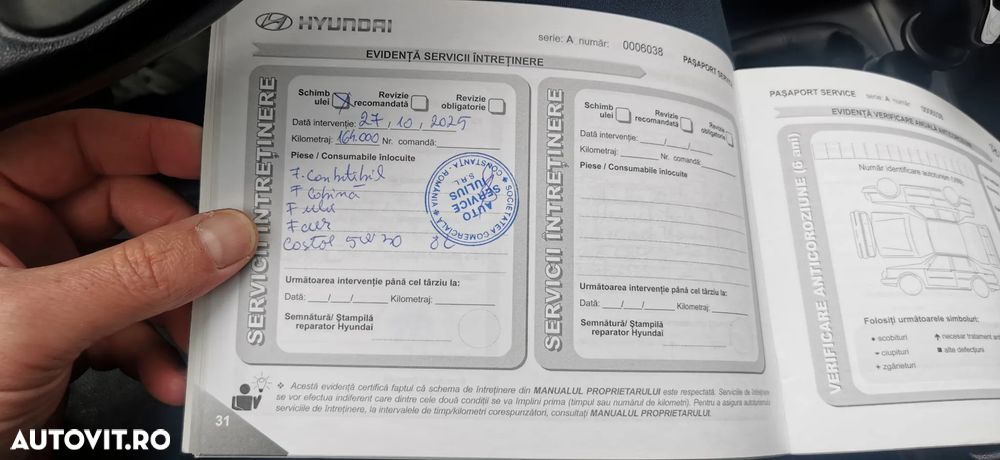 HYUNDAI
serie: A număr: 0006038
PAȘAPORT SERV
EVIDENȚĂ SERVICII ÎNTREȚINERE
SERVICII ÎNTREȚINERE
Schimb ulei
Revizie recomandată
Revizie obligatorie
Dată intervenție: 27 / 10 / 2025
Kilometraj: 164.000 Nr. comandă:
Piese / Consumabile înlocuite
F. combustibil
F ulei
F aer
Castrol 5W30
SOCIETATEA COMERCIALĂ
CONSTANȚA - ROMÂNIA
AUTO SERVICE IULIUS S.R.L.
Următoarea intervenție până cel târziu la:
Dată: ___/___/___ Kilometraj:
Semnătură/ Ștampilă
reparator Hyundai
SERVICII ÎNTREȚINERE
Schimb ulei
Revizie recomandată
Revizie obligatorie
Dată intervenție: ___/___/___
Kilometraj: Nr. comandă:
Piese / Consumabile înlocuite
Următoarea intervenție până cel târziu la:
Dată: ___/___/___ Kilometraj:
Semnătură/ Ștampilă
reparator Hyundai
❖ Acestă evidență certifică faptul că schema de întreținere din MANUALUL PROPRIETARULUI este respectată. Serviciile de întreținere
se vor efectua indiferent care dintre cele două condiții se va împlini prima (timpul sau numărul de kilometri). Pentru a asigura autoturismului
serviciile de întreținere, la intervalele de timp/kilometri corespunzători, consultați MANUALUL PROPRIETARULUI.
31
PAȘAPORT SERVICE serie: A număr: 0006038
EVIDENȚĂ VERIFICARE ANUALĂ ANTICOROZIUNE
VERIFICARE ANTICOROZIUNE (6 ani)
Număr identificare autoturism (VIN):
Folosiți următoarele simboluri:
• scobituri
necesar tratament ant
- ciupituri
■ alte defecțiuni
+ zgârieturi
AUTOVIT.RO